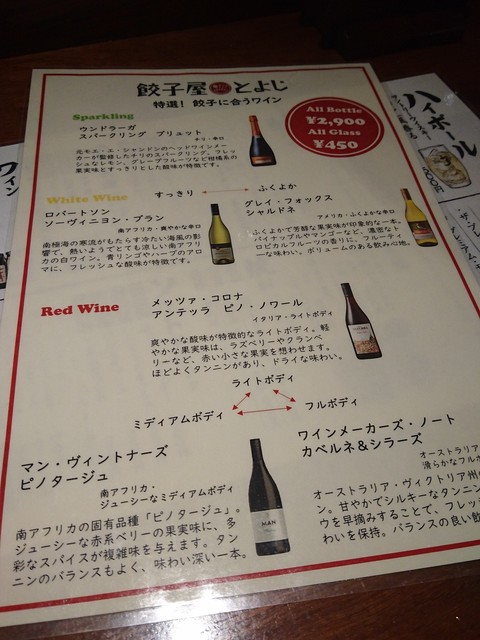 餃子屋 とよじ
特選！ 餃子に合うワイン
All Bottle
¥2,900
All Glass
¥450
Sparkling
ウンドラーガ
スパークリング ブリュット
チリ・辛口
元モエ・エ・シャンドンのヘッドワインメー
カーが監修したチリのスパークリング。フレッ
シュなレモン、グレープフルーツなど柑橘系の
果実味とすっきりとした酸味が特徴です。
White Wine
すっきり
ふくよか
ロバートソン
ソーヴィニヨン・ブラン
南アフリカ・爽やかな辛口
南極海の寒流がもたらす冷たい海風の影
響で、熱いようでとても涼しい南アフリ
カの白ワイン。青リンゴやハーブのアロ
マに、フレッシュな酸味が特徴です。
グレイ・フォックス
シャルドネ
アメリカ・ふくよかな辛口
ふくよかで芳醇な果実味が印象的な一本。
パイナップルやマンゴーなど、濃密なト
ロピカルフルーツの香りに、フルーティ
ーな味わい。ボリュームのある飲み心地。
Red Wine
メッツァ・コロナ
アンテッラ ピノ・ノワール
イタリア・ライトボディ
爽やかな酸味が特徴的なライトボディ。軽
やかな果実味は、ラズベリーやクランベ
リーなど、赤い小さな果実を想わせます。
ほどよくタンニンがあり、ドライな味わい。
ライトボディ
ミディアムボディ
フルボディ
マン・ヴィントナーズ
ピノタージュ
南アフリカ・
ジューシーなミディアムボディ
南アフリカの固有品種「ピノタージュ」。
ジューシーな赤系ベリーの果実味に、多
彩なスパイスが複雑味を与えます。タン
ニンのバランスもよく、味わい深い一本。
MAN
ワインメーカーズ・ノート
カベルネ＆シラーズ
オーストラリア
滑らかなフルボ
オーストラリア・ヴィクトリア州の
ン。甘やかでシルキーなタンニン
ウを早摘みすることで、フレッ
わいを保持。バランスの良い飲
ハイボール
ワイン